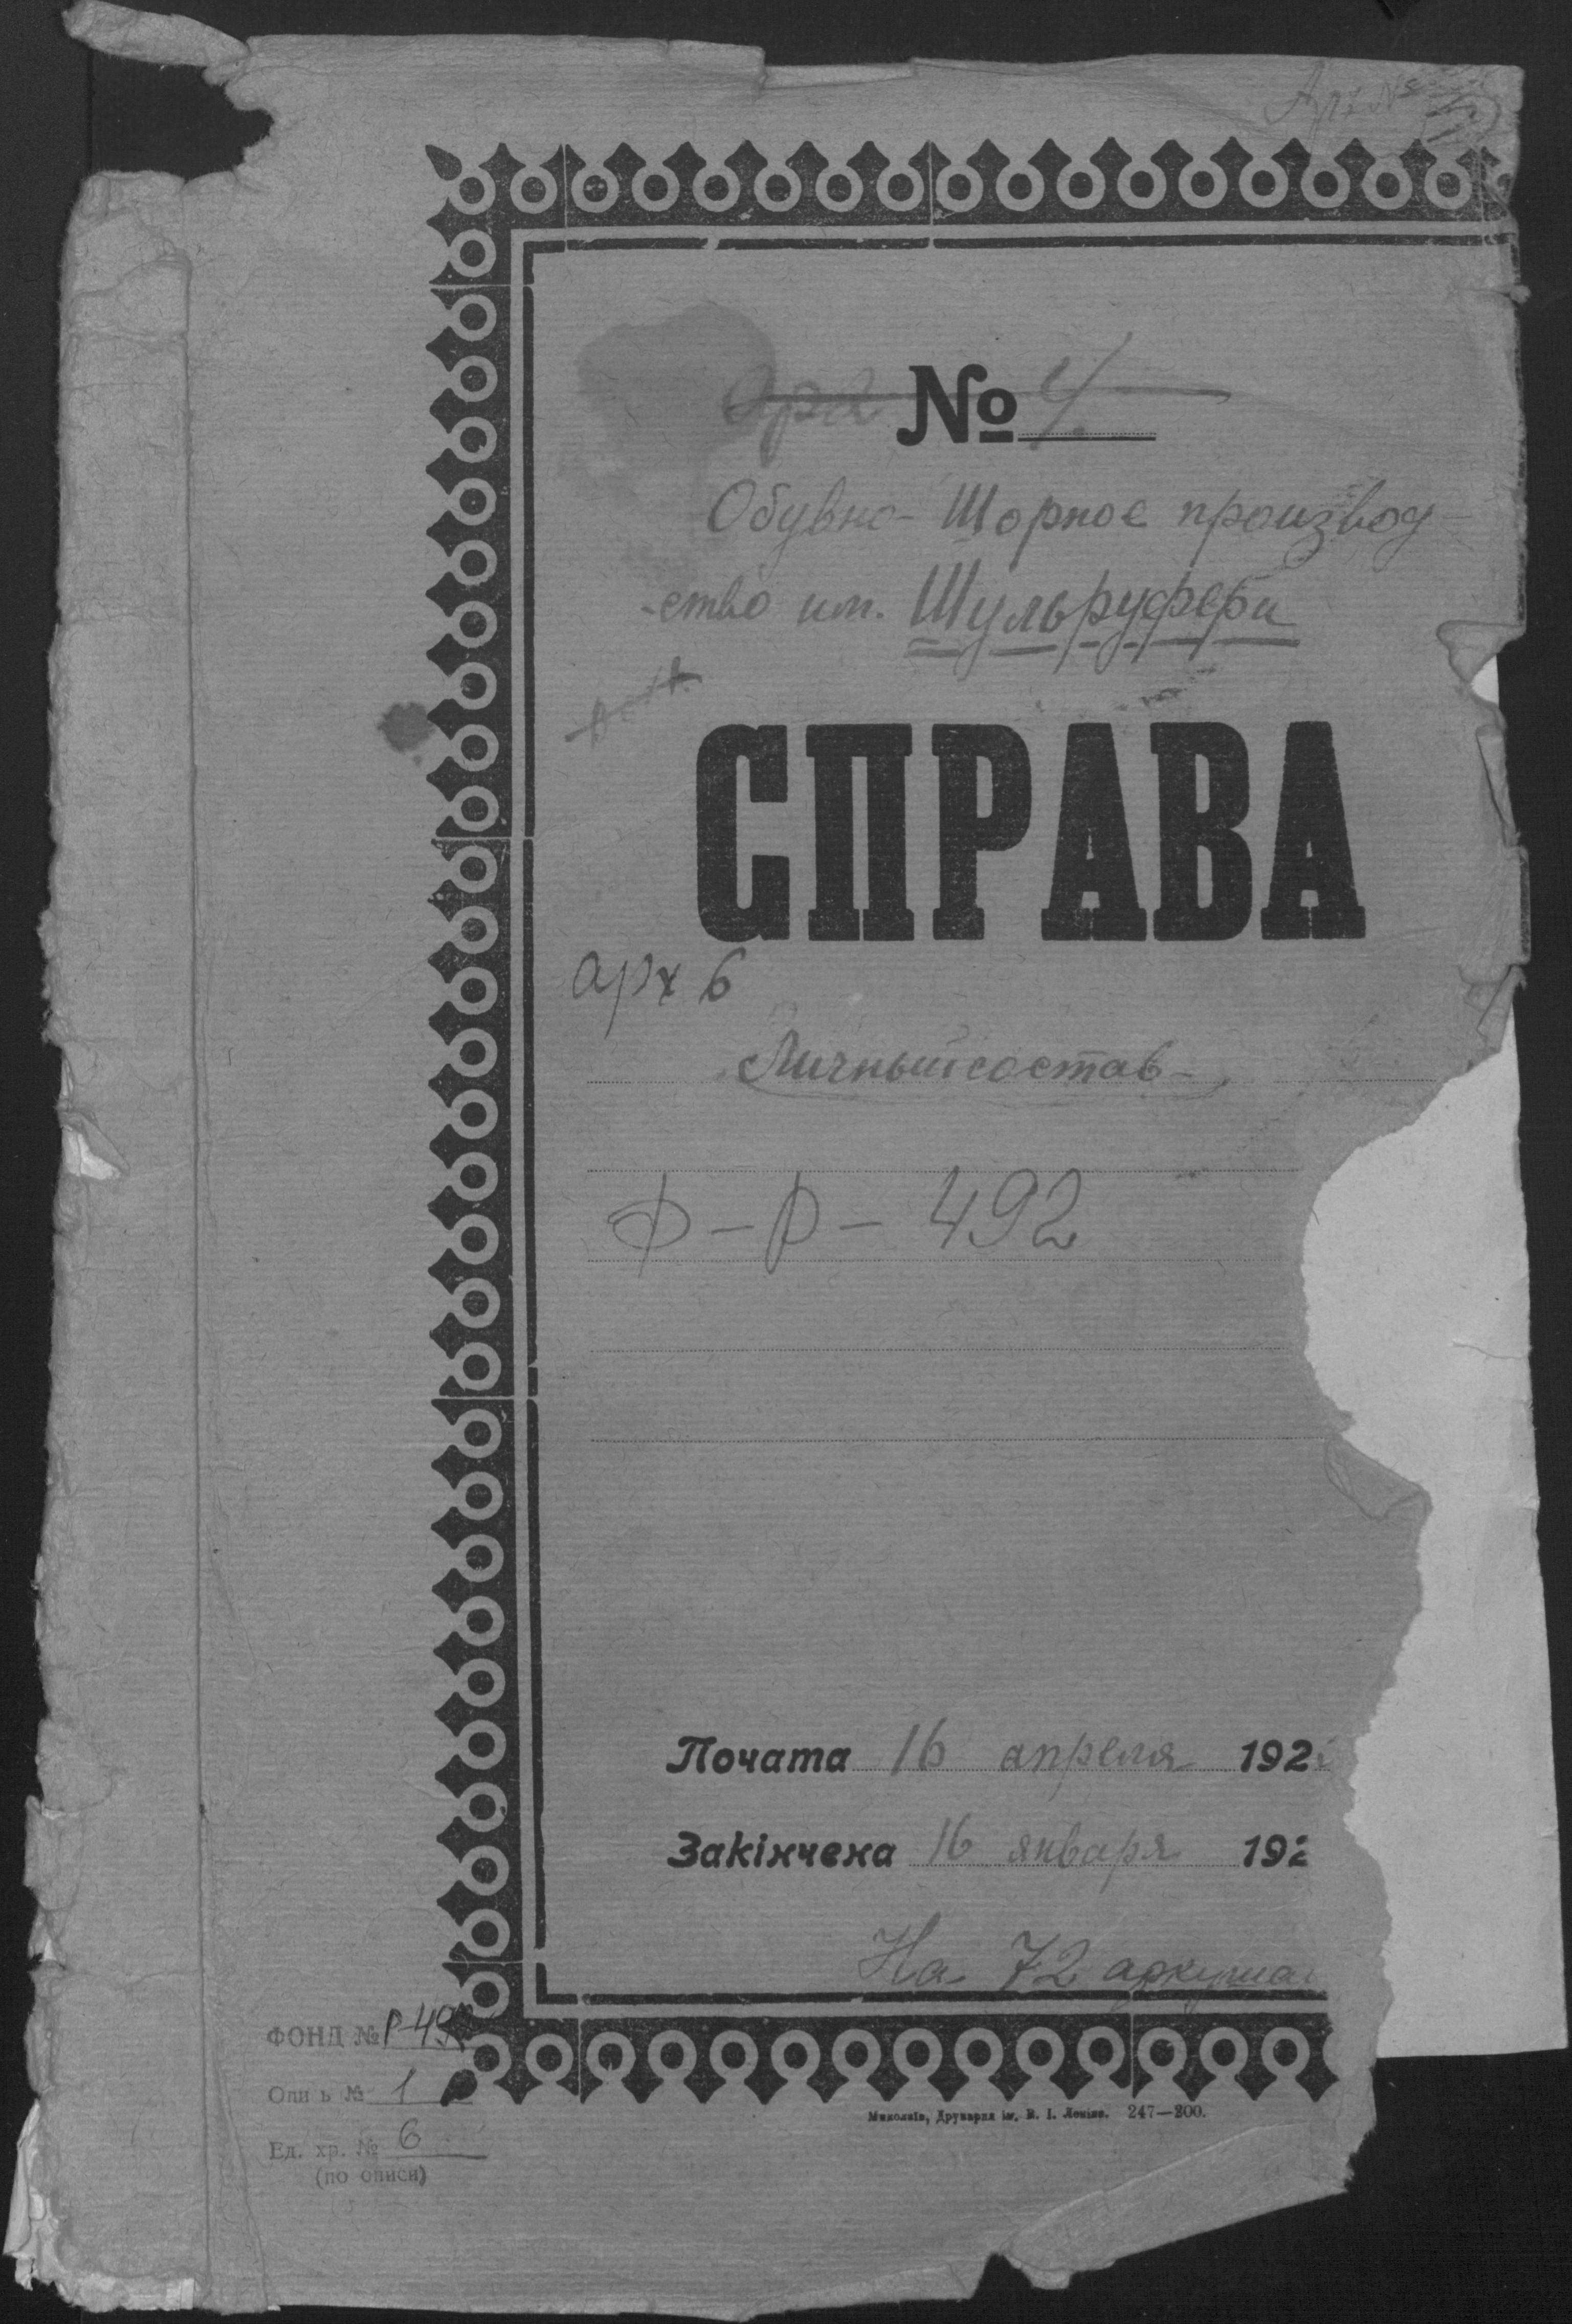 Арх №
№ 4.
Обувно-Шорное производ-
-ство им. Шульруфера
СПРАВА
арх 6
Личный состав
Ф-Р-492
Почата 16 апреля 192
Закінчена 16 января 192
На 72 аркушах
ФОНД № Р-492
Опи ь № 1
Ед. хр. № 6
(по описи)
Миколаїв, Друкарня ім. В. І. Леніна. 247—200.